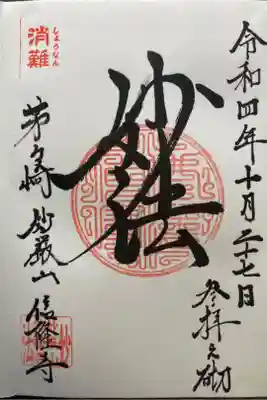 令和四年十月二十七日
参拝之砌
妙法
しょうなん
消難
茅ヶ崎 妙嚴山 信隆寺